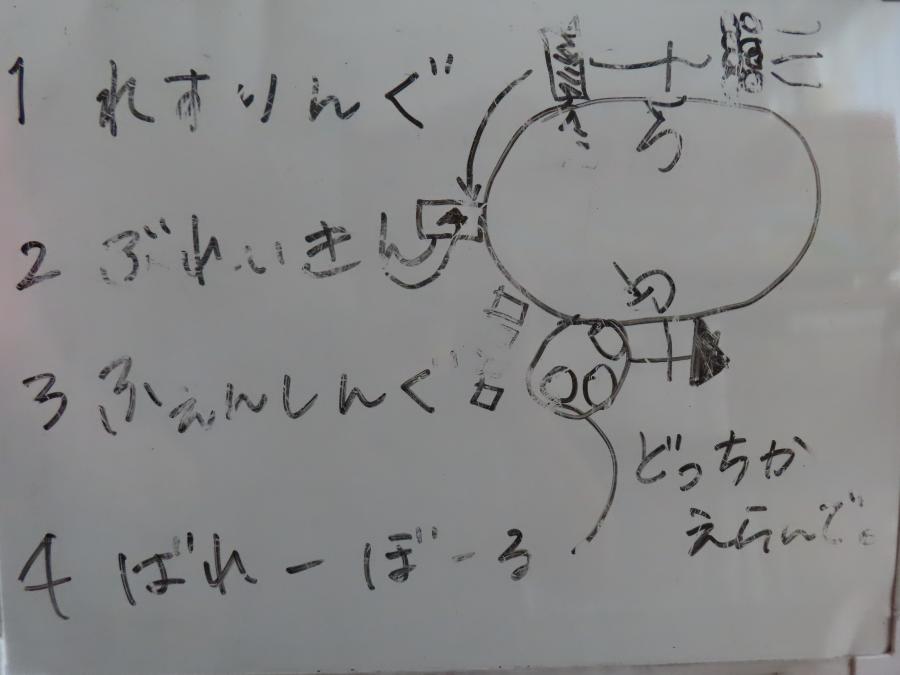 1 れすりんぐ
2 ぶれいきん
3 ふぇんしんぐ
4 ばれーぼーる
どっちか
えらんで。